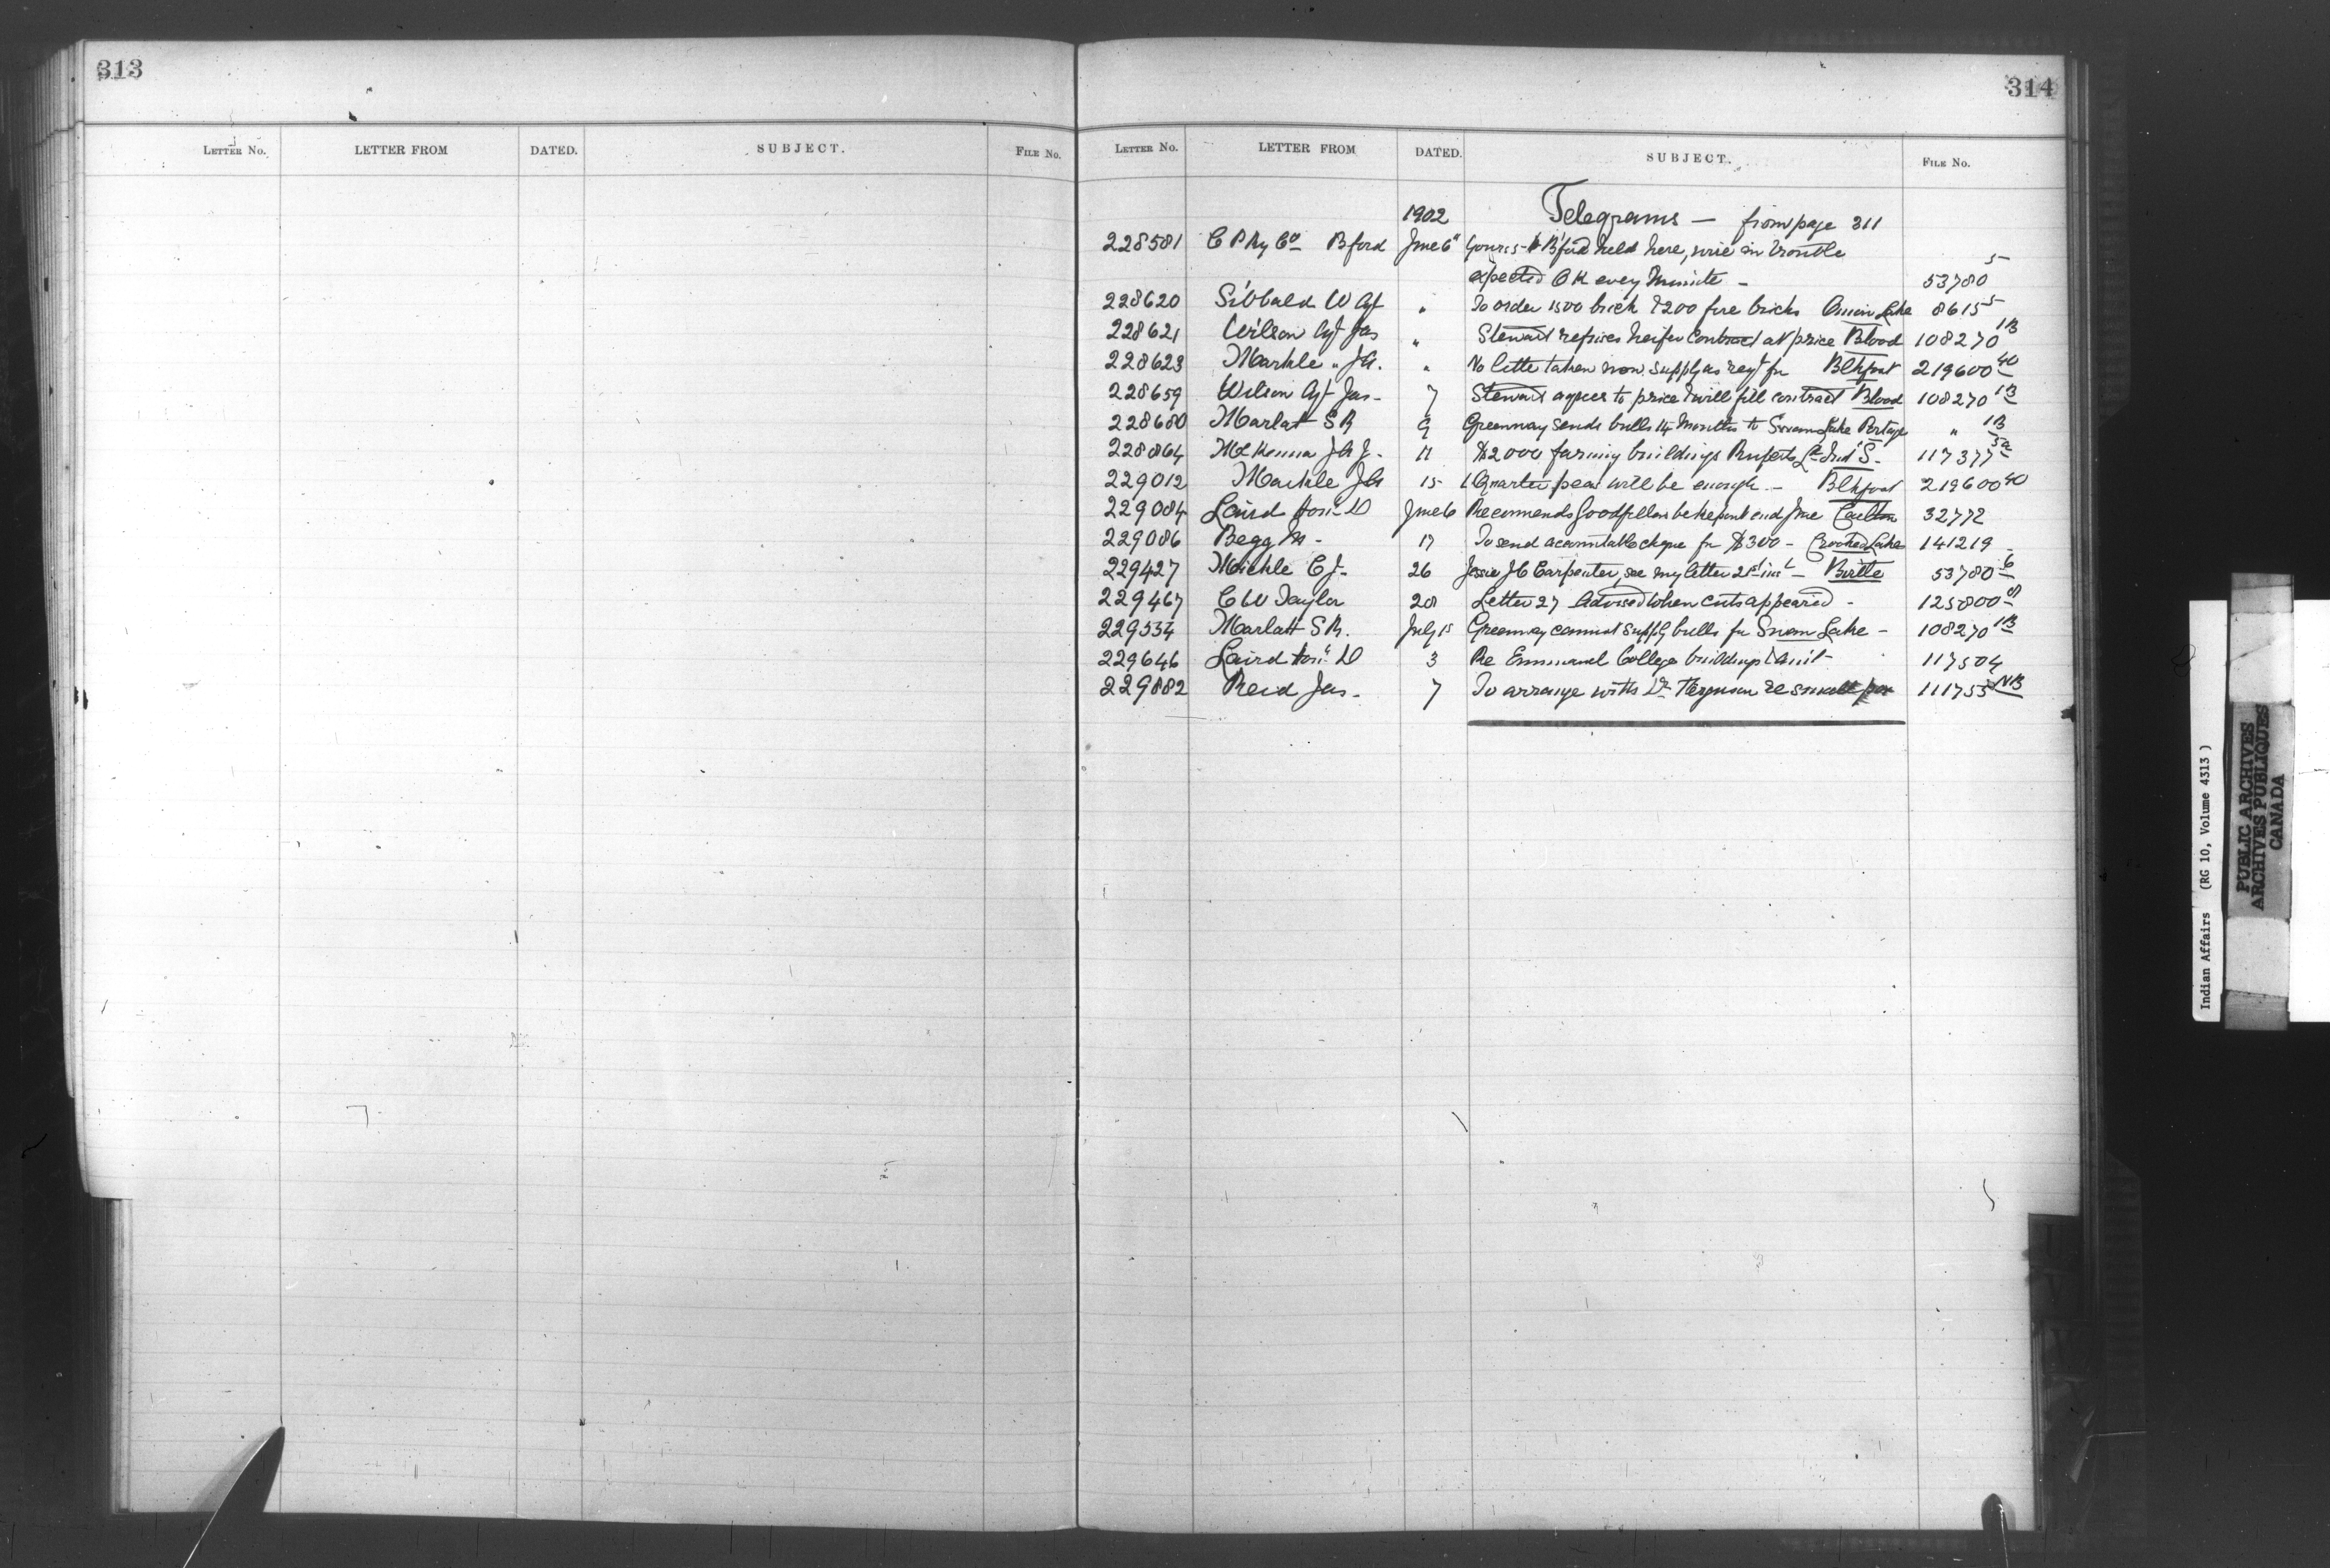 313
LETTER No. LETTER FROM DATED. SUBJECT. FILE No.
314
LETTER No. LETTER FROM DATED. SUBJECT. FILE No.
1902 Telegrams — from page 311
228581 C P Ry Co Bford June 6" Yours to B'ford held here, wire in trouble
expected OK every minute – 53780 5
228620 Sibbald W Agt " To order 1500 brick & 200 fire bricks Onion Lake 8615 5
228621 Wilson Agt Jas " Stewart refuses heifer contract at price Blood 108270 1B
228623 Markle " JH. " No taken now supply as reqt for Blkfoot 219600 40
228659 Wilson Agt Jas – 7 Stewart agrees to price & will fill contract Blood 108270 1B
228680 Marlatt S R 9 Greenway sends bulls 14 months to Swan Lake Portage " 1B
228864 McKenna J A J – 11 $2000 farming buildings Ruperts Ld Ind S. 117377 5a
229012 Markle JH 15 1 Quarter will be enough – Blkfoot 219600 40
229084 Laird Hon. D June 6 Recommends Goodfellow be kept until end June Carlton 32772
229086 Begg M – 17 To send accountable cheque for $300 – Crooked Lake 141219
229427 C J – 26 Jessie JC Carpenter, see my letter 21st inst – Birtle 53780 6
229467 C W Taylor 28 Letter 27 Advised when cuts appeared – 125800
229534 Marlatt S R. July 1s Greenway cannot supply bulls for Swan Lake – 108270 1B
229646 Laird Hon. D 3 Re Emmanuel College buildings & amt – 117504
229882 Reid Jas – 7 To arrange with Dr Ferguson re small pox 111755 NB
Indian Affairs (RG 10, Volume 4313)
PUBLIC ARCHIVES
ARCHIVES PUBLIQUES
CANADA